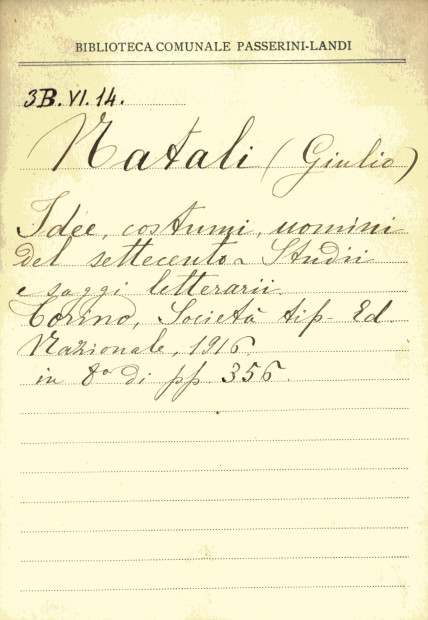 BIBLIOTECA COMUNALE PASSERINI-LANDI
3B. VI. 14.
Natali (Giulio)
Idee, costumi, uomini
del settecento - Studii
e saggi letterarii.
Torino, Società tip- Ed
Nazionale, 1916.
in 8º di pp. 356.